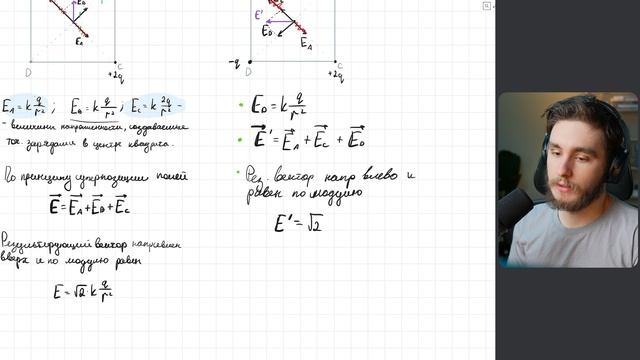 E_B
E_A
D
C
+2q
E_A = k q/r² ; E_B = k q/r² ; E_C = k 2q/r² -
- величины напряженности, создаваемые
точ. зарядами в центре квадрата.
По принципу суперпозиции полей
E⃗ = E⃗_A + E⃗_B + E⃗_C
Результирующий вектор направлен
вверх и по модулю равен
E = √2 · k q/r²
E'
E_D
E_A
-q
D
C
+2q
• E_D = k q/r²
• E⃗' = E⃗_A + E⃗_C + E⃗_D
• Рез. вектор напр влево и
равен по модулю
E' = √2